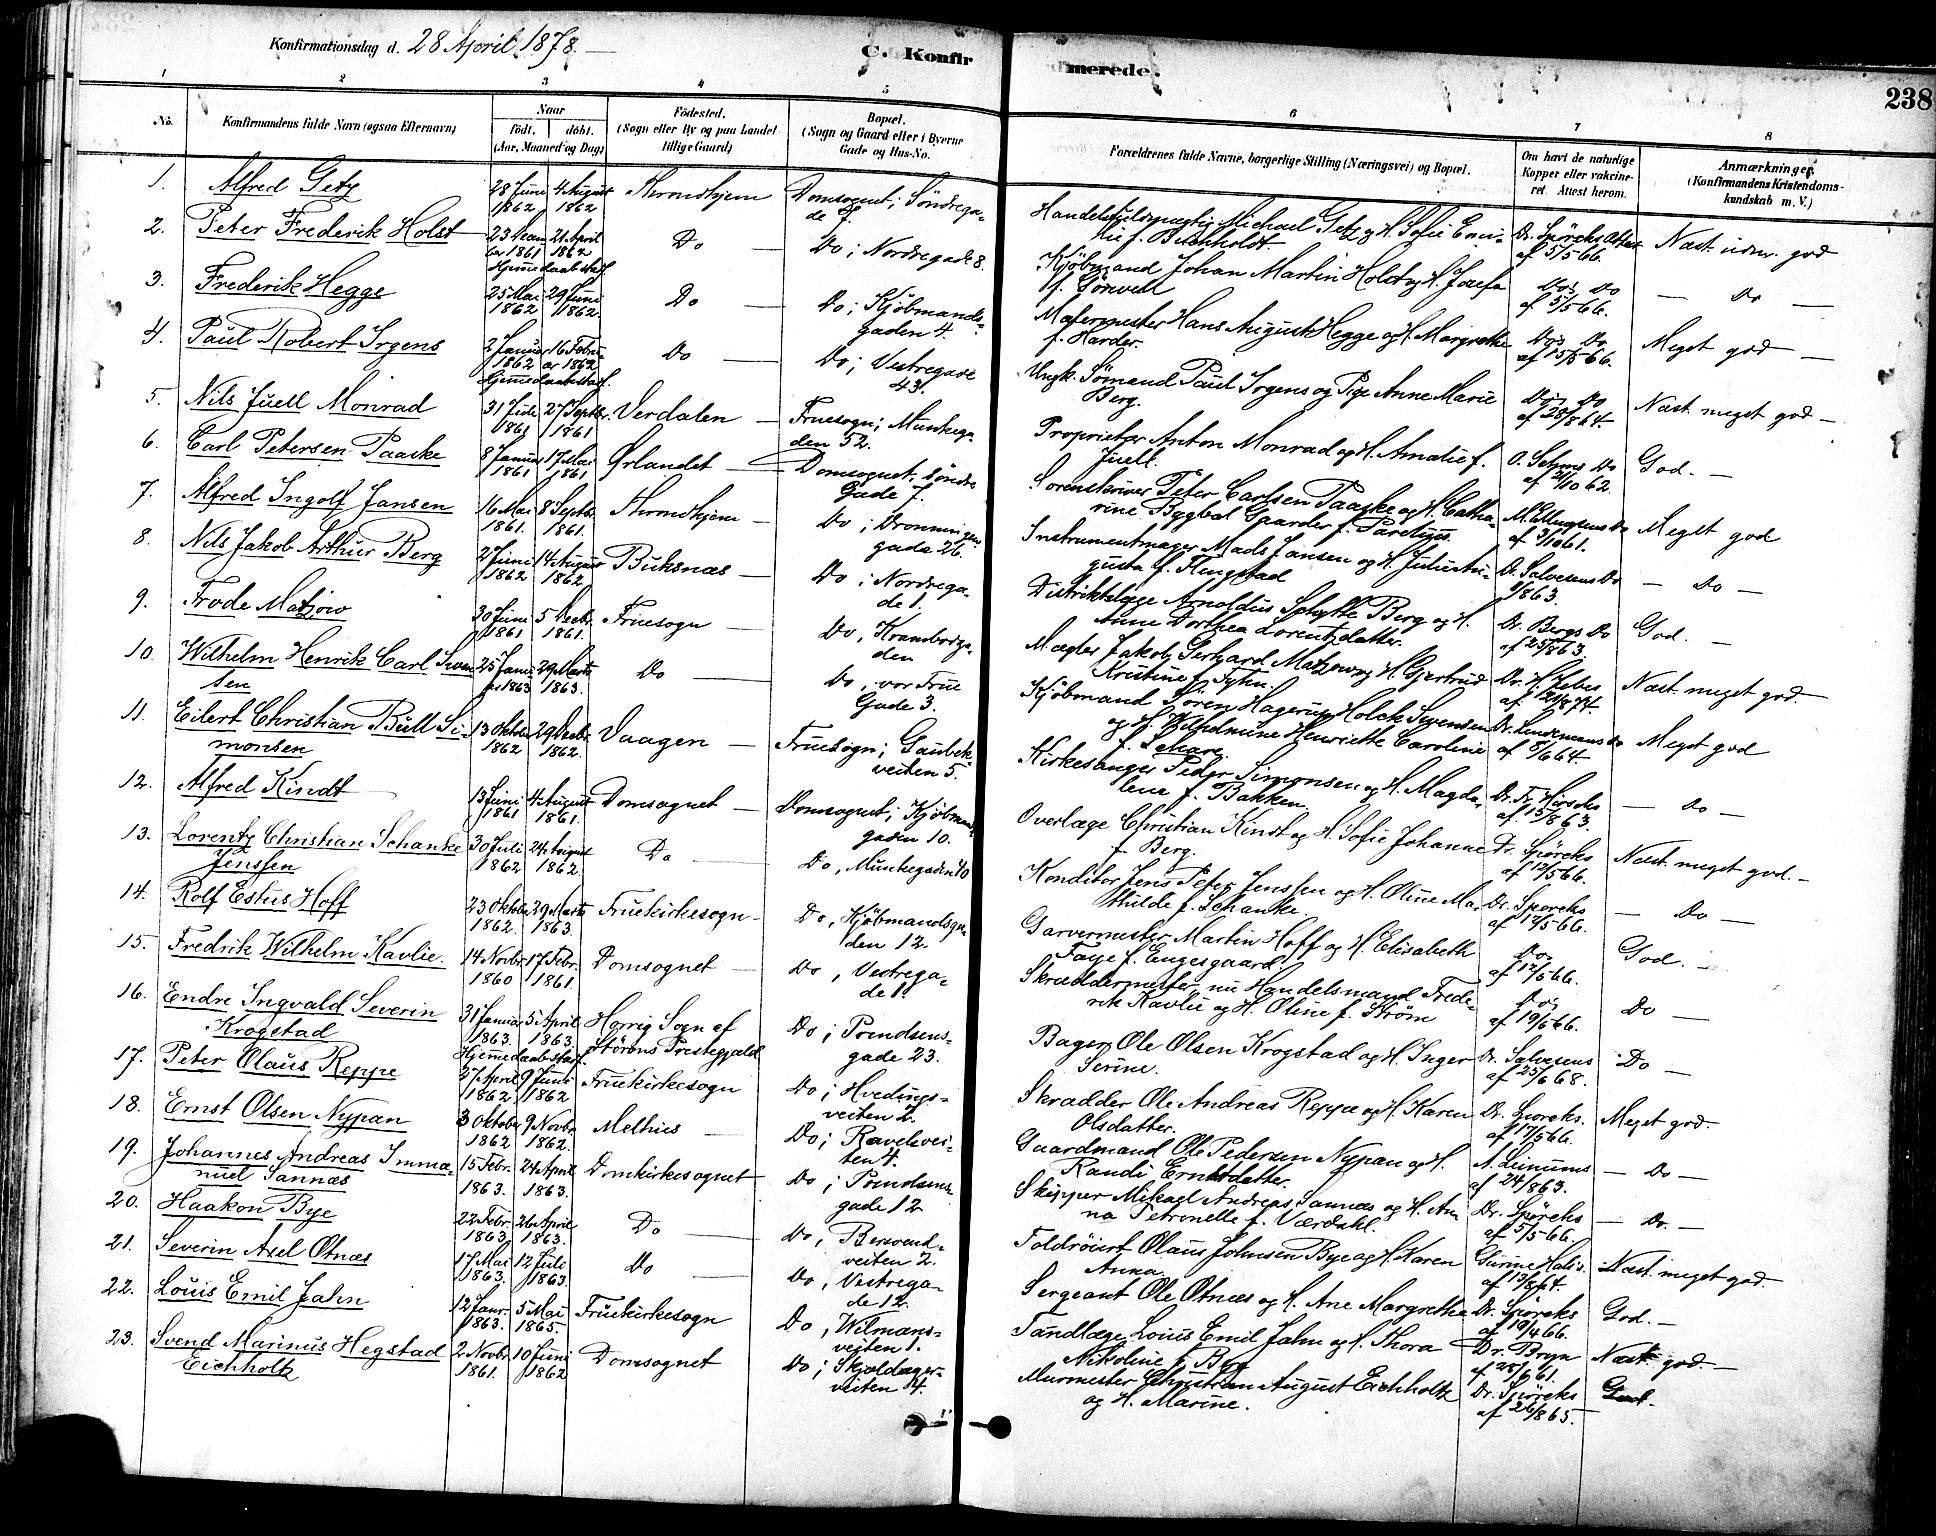 Konfirmationsdag d. 28 April 1878.
C. Konfirmerede.
238
1 2 3 4 5 6 7 8
No.
Konfirmandens fulde Navn (ogsaa Efternavn)
Naar
födt. döbt.
(Aar, Maaned og Dag)
Födested.
(Sogn eller By og paa Landet
tillige Gaard)
Bopæl.
(Sogn og Gaard eller i Byerne
Gade og Hus-No.
Forældrenes fulde Navne, borgerlige Stilling (Næringsvei) og Bopæl.
Om havt de naturlige
Kopper eller vakcine-
ret. Attest herom.
Anmærkninger.
(Konfirmandens Kristendoms-
kundskab m. V.)
1. Alfred Getz 28 Juni 1862 4 August 1862 Throndhjem Domsognet; Söndregade 7. Handelsfuldmægtig Michael Getz og H. Sofie f. Buchholdt Dr. Spörcks Attest af 5/5 66. Næst. udm. god
2. Peter Frederik Holst 1861 21 April 1862 Hjemmedaab stadf. Do Do; Nordregade 8. Kjöbmand Johan Martin Holst og H. Josefa f. Do Do af 5/5 66. Do
3. Frederik Hegge 25 Mai 1862 29 Juni 1862. Do Do; Kjöbmandsgaden 4. Malermester Hans August Hegge og H. Margrethe f. Harder. Do Do af 15/5 66. Meget god
4. Paul Robert Irgens 2 Januar 1862 16 Februar 1862 Hjemmedaab stadf. Do Do; Vestregade 43. Ungk. Sömand Paul Irgens og Pige Anne Marie Berg. Do Do af 28/8 64. Næst. meget god
5. Nils Juell Monrad 31 Juli 1861 27 Septbr. 1861 Verdalen Fruesogn; Munkegaden 52. Proprietær Anton Monrad og H. Amalie f. Juell. Do 62 God.
6. Carl Petersen Paaske 8 Januar 1861 17 Mai 1861 Ørlandet Domsognet, Söndre Gade 7. Sorenskriver Peter Carlsen Paaske og H. Catharine Gaarder f. Paretius. Do af 61. Meget god
7. Alfred Ingolf Jansen 16 Mai 1861. 8 Septbr. 1861. Throndhjem Do; Dronningensgade 26. Instrumentmager Mads Jansen og H. Julie Augusta f. Flengstad Dr. Salvesens Do 1863. Do
8. Nils Jakob Arthur Berg 2 Juni 1862 14 August 1862 Buksnæs Do; Nordregade 1. Distriktslæge Arnoldus Schytte Berg og H. Anne Dorthea Lorentzdatter. Dr. Bergs Do af 25/8 63. God.
9. Frode Matzow 30 Juni 1861 5 Decbr. 1861. Fruesogn Do, Krambodgaden Mægler Jakob Gerhard Matzow og H. Gjertrud Kristine f. Tyhn. Næst. meget god.
10. Wilhelm Henrik Carl Svensen 25 Januar 1863 29 Marts 1863. Do Do, vor Frue Gade 3. Kjöbmand Sören Hagerup Holck Svensen og H. Wilhelmine Henriette Caroline f. Schare Dr. Lindemans Do af 8/6 64. Meget god
11. Eilert Christian Bull Simonsen 13 Oktober 1862 29 Decbr. 1862. Vaagen Fruesogn; Gaubekveiten 5. Kirkesanger Peder Simonsen og H. Magdalene f. Bakken. af 15/8 63. Do
12. Alfred Kindt 13 Juni 1861 4 August 1861. Domsognet Domsognet; Kjöbmandsgaden 10. Overlæge Christian Kindt og H. Sofie Johanne f. Berg. Dr. Spörcks af 12/5 66. Næst meget god.
13. Lorentz Christian Schanke Jenssen 30 Juli 1862 24 August 1862 Do Do, Munkegaden 40 Konditor Jens Peter Jenssen og H. Oline Mathilde f. Schanke. Dr. Sporcks af 12/5 66. Do
14. Rolf Estus Hoff 23 Oktober 1862. 29 Marts 1863. Fruekirkesogn Do, Kjöbmandsgaden 12. Garvermester Martin Hoff og H. Elisabeth Faye f. Engesgaard Do af 12/5 66. God.
15. Fredrik Wilhelm Kavlie. 14 Novbr. 1860 17 Febr. 1861. Domsognet Do, Vestregade 1. Skræddermester, nu Handelsmand Frederik Kavlie og H. Oline f. Ström Do af 19/5 66. Do
16. Endre Ingvald Severin Krogstad 31 Januar 1863. 5 April 1863. Hjemmedaab stadf. Horrig Sogn af Störens Prestegjæld Do; Prindsensgade 23. Bager Ole Olsen Krogstad og H. Inger Serine. Dr. Salvesens af 25/6 68. Do
17. Peter Olaus Reppe 27 April 1862 9 Juni 1862 Fruekirkesogn Do; Hvedingsveiten 2. Skrædder Ole Andreas Reppe og H. Karen Olsdatter. Dr. Sporcks. af 17/5 66. Meget god.
18. Ernst Olsen Nypan 3 Oktober 1862 9 Novbr. 1862. Melhus Do; Ravelsveiten 4. Gaardmand Ole Pedersen Nypan og H. Randi Ernstdatter. af 24/8 63. Do
19. Johannes Andreas Immanuel Sannæs 15 Febr. 1863. 24 April 1863. Domkirkesognet Do; Prindsensgade 12. Skipper Mikael Andreas Sannæs og H. Anna Petronelle f. Værdahl. Dr. Spörcks af 5/5 66. Do.
20. Haakon Bye 22 Febr. 1863 26 April 1863. Do Do, veiten 2. Toldröiert Olaus Johnsen Bye og H. Karen Anna. af 13/8 64. Næst meget god
21. Severin Axel Otnæs 17 Mai 1863. 12 Juli 1863. Do Do, Vestregade 12. Sergeant Ole Otnæs og H. Ane Margrethe Dr. Spörcks af 19/4 66. God.
22. Louis Emil Jahn 12 Janr. 1863. 5 Mai 1865. Fruekirkesogn Do, Wilmansveiten 1. Tandlæge Louis Emil Jahn og H. Thora Nikoline f. Berg Dr. Bryn af 28/9 61. Næst god.
23. Svend Marinus Hegstad Eichholtz 2 Novbr. 1861. 10 Juni 1862 Domsognet Do; Skjoldagerveiten 4. Murmester Christian August Eichholtz og H. Marine. Dr. Spörcks af 26/8 65. God.